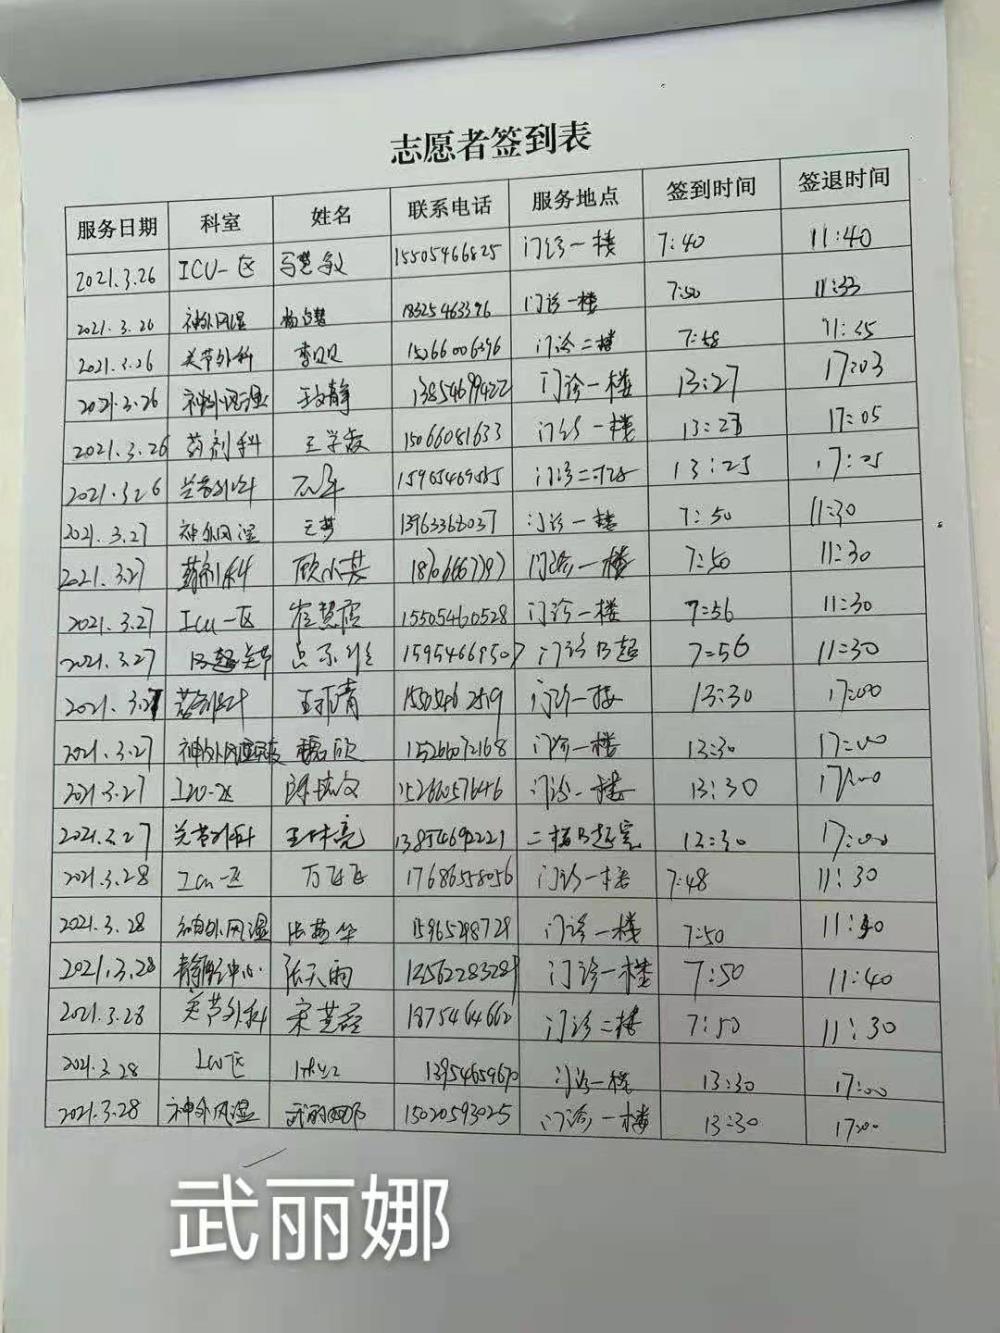 志愿者签到表
服务日期 科室 姓名 联系电话 服务地点 签到时间 签退时间
2021.3.26 ICU一区 马慧敏 15505466825 门诊一楼 7:40 11:40
2021.3.26 神外风湿 18325463396 门诊一楼 7:50 11:33
2021.3.26 关节外科 李贝贝 15266006396 门诊二楼 7:58 11:35
2021.3.26 神外风湿 王文静 13854699422 门诊一楼 13:27 17:03
2021.3.26 药剂科 王学霞 15066081633 门诊一楼 17:05
2021.3.26 关节外科 门诊二楼 13:25 17:25
2021.3.27 神外风湿 王梦 13963368037 门诊一楼 7:50 11:30
2021.3.27 药剂科 顾小英 门诊一楼 7:50 11:30
2021.3.27 Icu一区 崔慧霞 15505460528 门诊一楼 7:56 11:30
2021.3.27 B超关节 15954669507 门诊B超 7:56 11:30
2021.3.27 药剂科 门诊一楼 13:30 17:00
2021.3.27 15266072168 门诊一楼 13:30 17:00
2021.3.27 15266057646 门诊一楼 13:30 17:00
2021.3.27 关节外科 二楼B超室 17:00
2021.3.28 Icu一区 万飞飞 17686558056 门诊一楼 7:48 11:30
2021.3.28 神外风湿 15965298729 门诊一楼 7:50
2021.3.28 静配中心 张天雨 门诊一楼 7:50 11:40
2021.3.28 关节外科 1875464662 门诊二楼 7:50 11:30
2021.3.28 13954659670 门诊一楼 13:30 17:00
2021.3.28 神外风湿 武丽娜 15020593025 门诊一楼 13:30 17:00
武丽娜